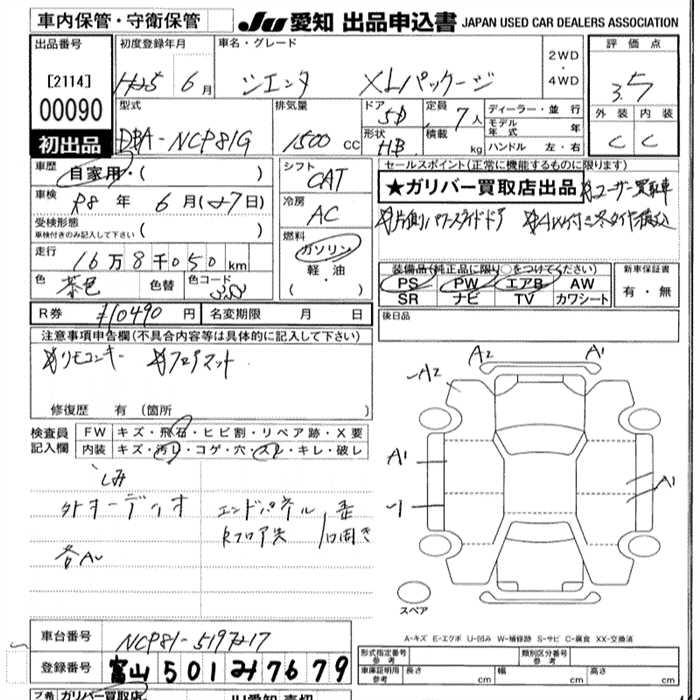 車内保管・守衛保管
JU 愛知 出品申込書 JAPAN USED CAR DEALERS ASSOCIATION
出品番号
[2114]
00090
初出品
初度登録年月
H25 6月
車名・グレード
シエンタ XLパッケージ
2WD
・
4WD
評価点
3.5
外装 内装
C C
型式
DBA-NCP81G
排気量
1500 cc
ドア
5D
形状
HB
定員
7人
積載
kg
ディーラー・並行
モデル年式 年
ハンドル 左・右
車歴
自家用・( )
車検
R8年 6月(27日)
受検形態
車検付きのみ記入して下さい ( )
走行
16万8千050km
色
茶色
色替
色コード
シフト
CAT
冷房
AC
燃料
ガソリン
軽・油
( ・ )
セールスポイント(正常に機能するものに限ります)
★ガリバー買取店出品
ユーザー買取車
片側パワースライドドア
装備品(純正品に限り○をつけてください)
PS PW エアB AW
SR ナビ TV カワシート
新車保証書
有・無
R券 ¥10490円
名変期限 月 日
後日品
注意事項申告欄(不具合内容等は具体的に記入して下さい)
リモコンキー フロアマット
修復歴 有 (箇所 )
検査員記入欄
FW キズ・飛石・ヒビ割・リペア跡・X要
内装 キズ・汚れ・コゲ・穴・スレ・キレ・破レ
シミ
外オーディオ
エンドパネル歪
Rフロア突
各AU
A2 A1
A2
A1
A1
スペア
A-キズ E-エクボ U-凹み W-補修跡 S-サビ C-腐食 XX-交換済
車台番号
登録番号 富山 501 み 7679
形式指定番号
参考
類別区分番号
参考
車庫証明用
参考
長さ cm 幅 cm 高さ cm
ガリバー買取店
JU愛知